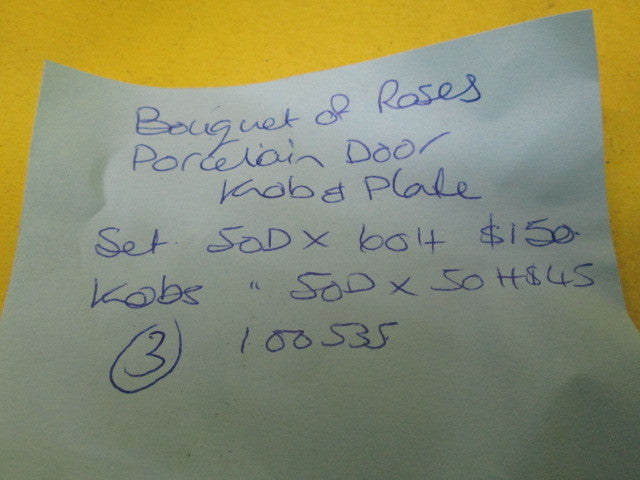 Bouquet of Roses
Porcelain Door
Knob & Plate
Set 50D X 60H $150
Kobs " 50D X 50H $45
3 100535